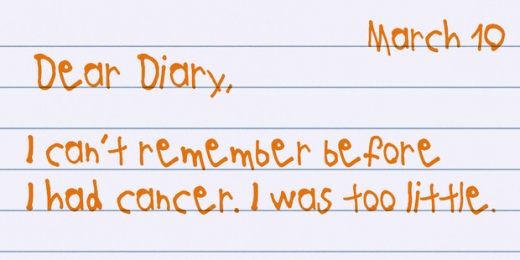 March 10
Dear Diary,
I can't remember before
I had cancer. I was too little.